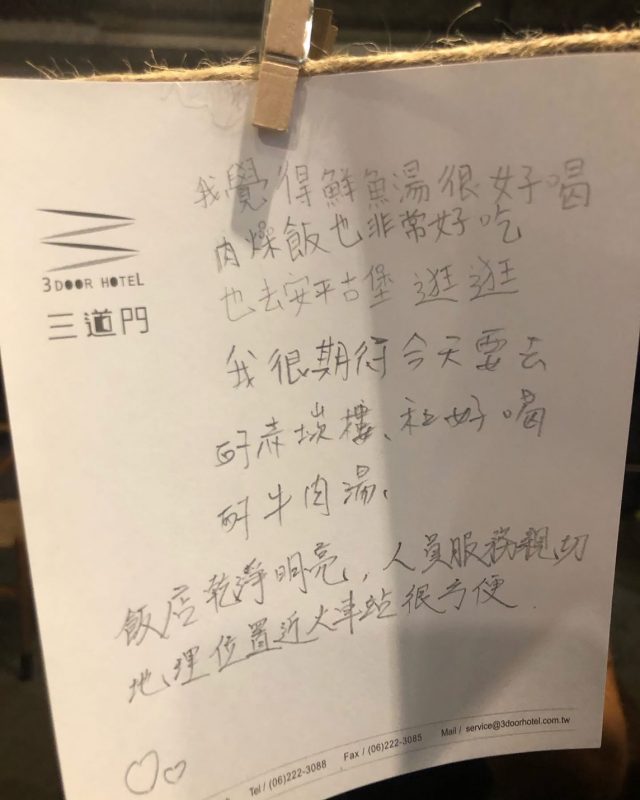 3 DOOR HOTEL
三道門
我覺得鮮魚湯很好喝
肉燥飯也非常好吃
也去安平古堡 逛逛
我很期待今天要去
的赤崁樓、和好喝
的牛肉湯、
飯店乾淨明亮，人員服務親切
地理位置近火車站很方便.
Tel / (06)222-3088 Fax / (06)222-3085 Mail / service@3doorhotel.com.tw